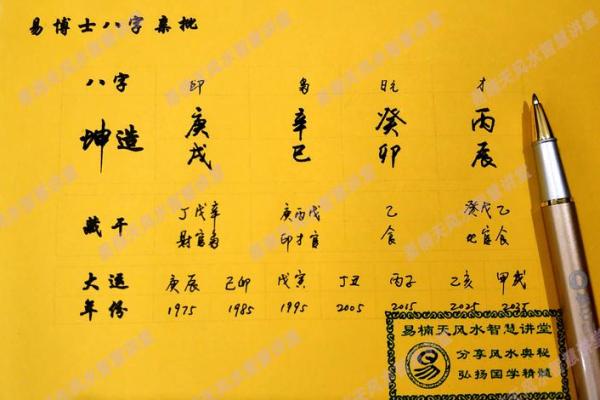 易博士八字亲批
八字 印 枭 日元 才
坤造 庚戌 辛巳 癸卯 丙辰
藏干 丁戊辛 庚丙戊 乙 癸戊乙
财官枭 印才官 食 比官食
大运 庚辰 己卯 戊寅 丁丑 丙子 乙亥 甲戌
年份 1975 1985 1995 2005 2015 2025 2035
易楠天风水智慧讲堂
分享风水奥秘
弘扬国学精髓
易
易楠天风水智慧讲堂